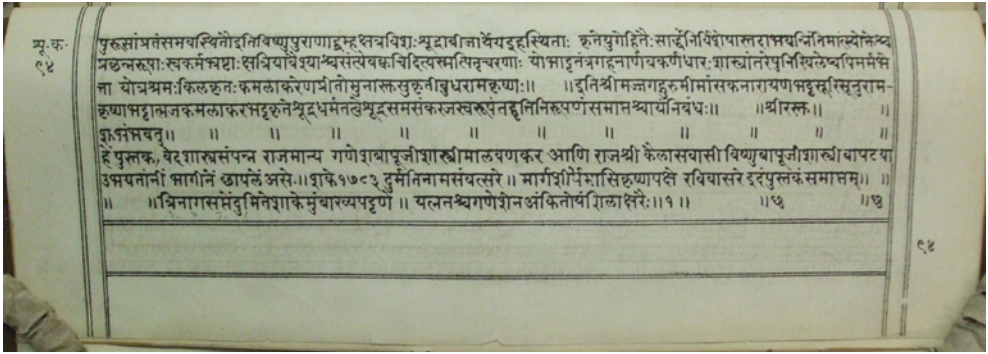 शू.क.
९४
पुरूसांप्रतंसमवस्थितौइतिविष्णुपुराणाद्ब्रह्मक्षत्रविशःशूद्राबीजार्थेयइहस्थिताः कृतेयुगेहितैःसार्द्धंनिर्विशेषास्तदाभवन्नितिमात्स्योक्तेश्च
प्रछन्नरूपाःस्वकर्मभ्रष्टाः क्षत्रियावैश्याश्चसंत्येवक्वचिदित्यस्मत्पितृचरणाः योभाट्टतंत्रगहनार्णवकर्णधारःशास्त्रांतरेषुनिखिलेष्वपिमर्मभे
त्ता योत्रश्रमःकिलकृतःकमलाकरेणप्रीतोमुनास्तुसुकृतीबुधरामकृष्णः॥ ॥इतिश्रीमज्जगद्गुरुमीमांसकनारायणभट्टसूरिसूनुराम-
कृष्णभट्टात्मजकमलाकरभट्टकृतेशूद्रधर्मतत्वेशूद्रसमसंकरजस्वरूपंतद्वृत्तिनिरूपणंसमाप्तश्चायंनिबंधः॥ ॥श्रीरस्तु॥ ॥
शुभंभवतु॥ ॥ ॥ ॥ ॥ ॥ ॥ ॥ ॥ ॥ ॥
हें पुस्तक, वेदशास्त्रसंपन्न राजमान्य गणेशबापूजीशास्त्रीमालवणकर आणि राजश्री कैलासवासी विष्णुबापूजीशास्त्रीबापट या
उभयतांनीं भागीनें छापलें असे.॥शके१७८३ दुर्मतिनामसंवत्सरे॥ मार्गशीर्षमासिकृष्णपक्षे रविवासरे इदंपुस्तकंसमाप्तम्॥ ॥
॥ ॥त्रिनागसप्तेंदुमितेशाकेमुंबाख्यपट्टणे॥ यत्नतश्चगणेशेनअंकितोयंशिलाक्षरैः॥१॥ ॥छ ॥छ
९४